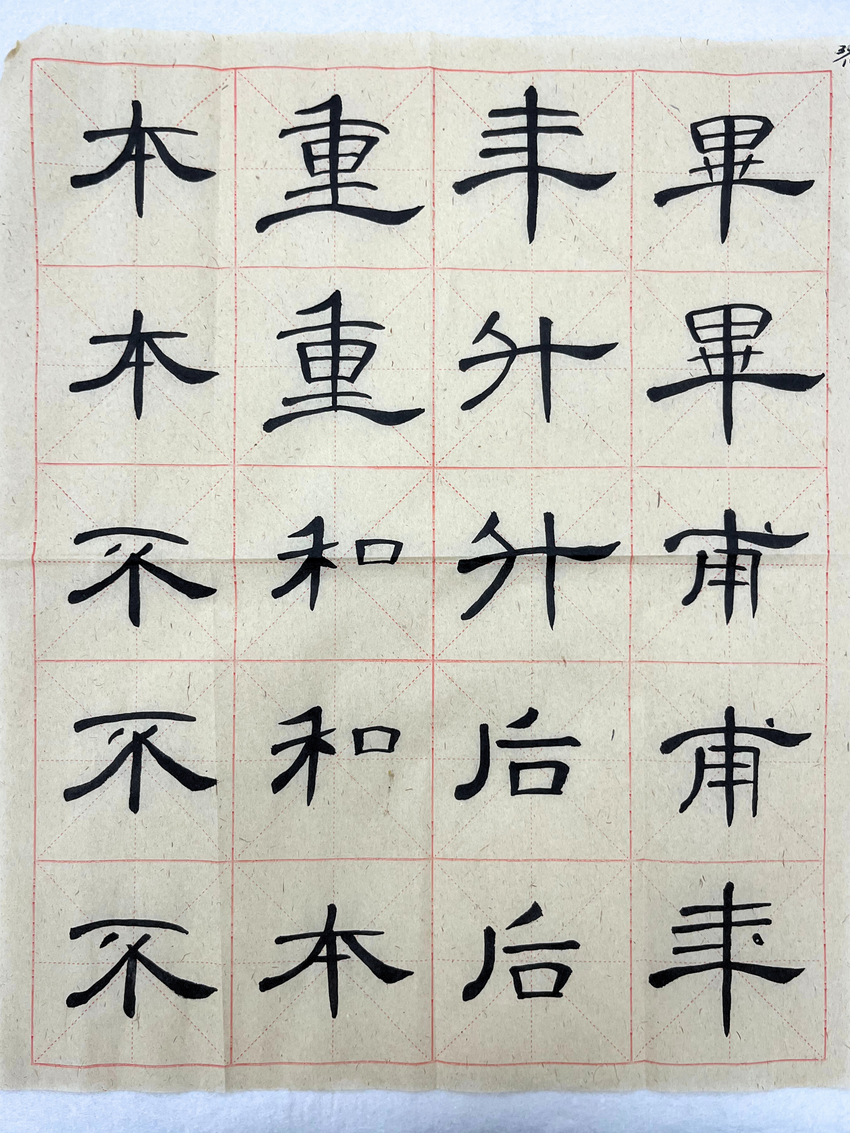 畢畢甫甫年
年升升后后
重重和和本
本本不不不